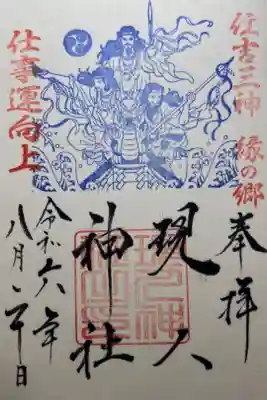 住吉三神 縁の郷
仕事運向上
奉拝
現人
神社
令和六年
八月二十日